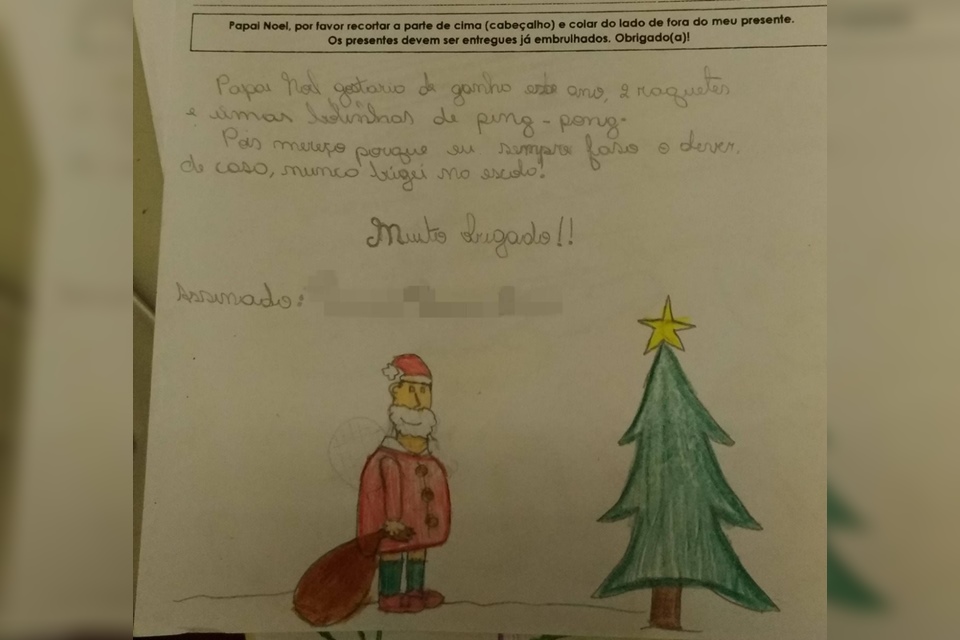 Papai Noel, por favor recortar a parte de cima (cabeçalho) e colar do lado de fora do meu presente.
Os presentes devem ser entregues já embrulhados. Obrigado(a)!
Papai Noel gostaria de ganha este ano, 2 raquetes
e umas bolinhas de ping-pong.
Pois mereço porque eu sempre faso o dever,
de casa, nunca brigei na escola!
Muito obrigado!!
Assinado: